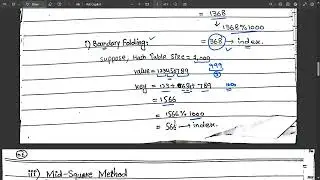 = 1368
1368%1000
= 368 → index.
i) Boundary Folding:
suppose, Hash Table Size = 1,000
value = 123456789
999
key = 123 + 654 + 789
1000
= 1566
= 1566% 1000
= 566 → index.
iii) Mid-Square Method